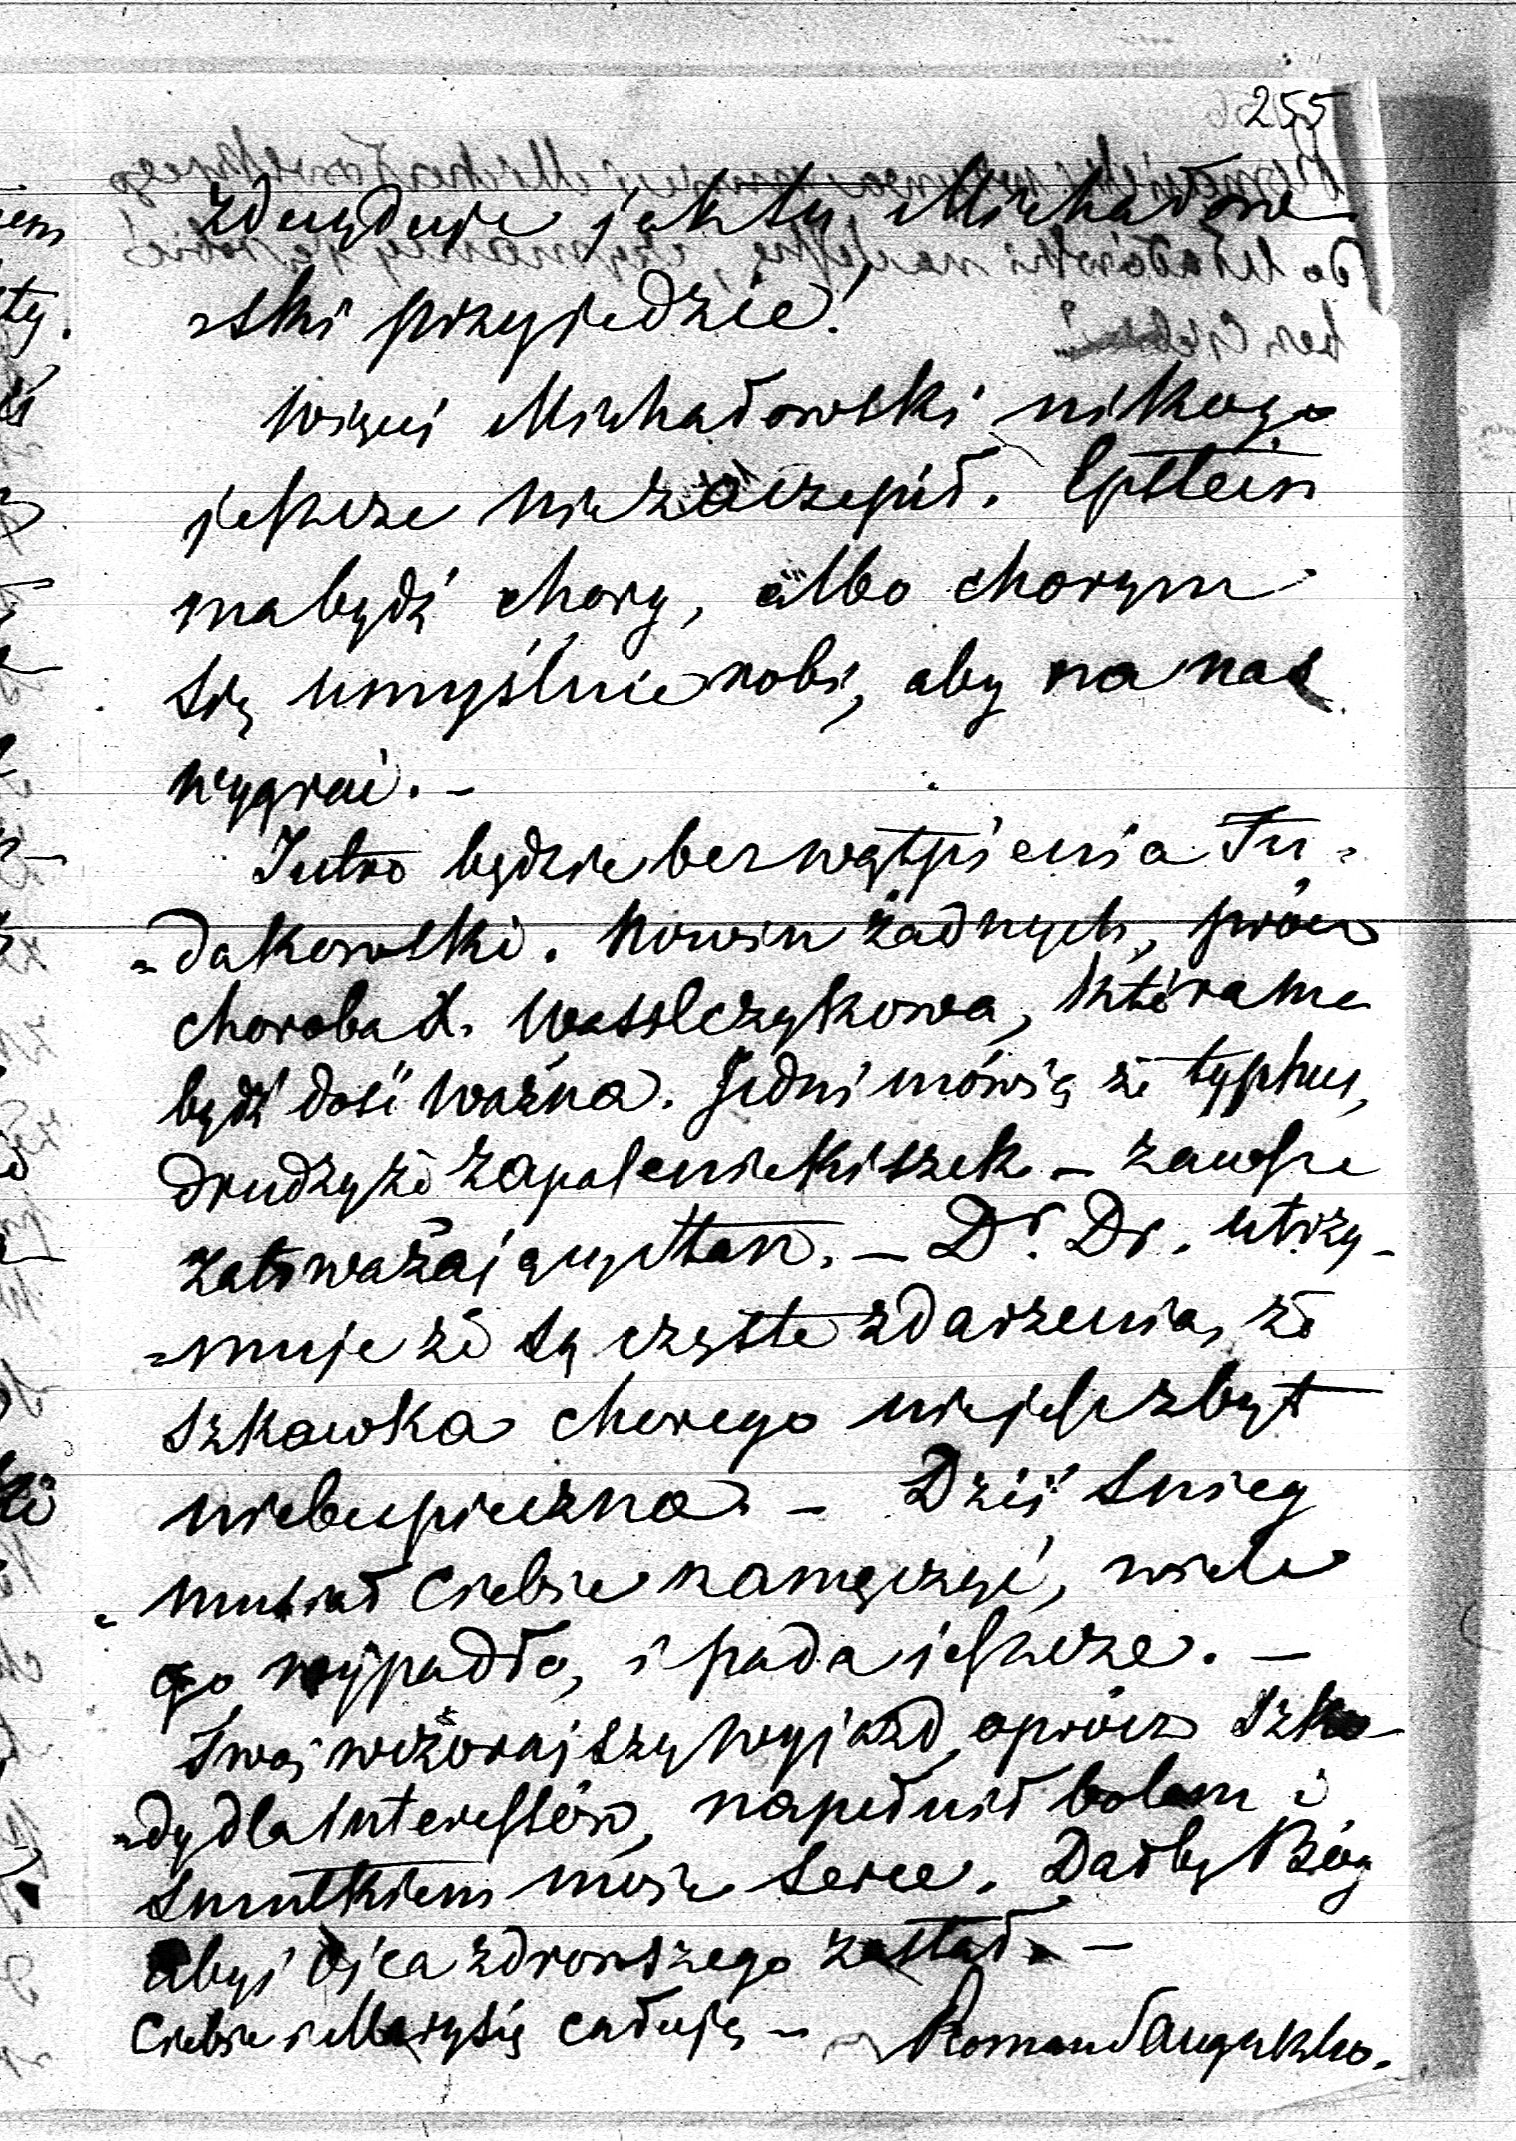 255
zdecyduje jak tu Michałow-
-ski przyjedzie.
Więcej Michałowski nikogo
jeszcze nie zaczepił. Epstein
ma bydź chory, albo chorym
się umyślnie robi, aby na nas
wygrać. -
Jutro będzie bez wątpienia Tu-
-dakowski. Nowin żadnych, prócz
choroba X. Wasilczykowa, która ma
bydź dość ważna. Jedni mówią że typhus,
drudzy że zapalenie kiszek - zawsze
zatrważający stan. - Dr. Dr. utrzy-
-muje że są częste zdarzenia, że
szkawka chorego nie jest zbyt
niebezpieczna. - Dziś śnieg
musiał Ciebie namęczyć, wiele
go wypadło, i pada jeszcze. -
Twój wczorajszy wyjazd, oprócz szko-
-dy dla Interessów, napełnił bolem i
smutkiem moje serce. Dałby Bóg
abyś Ojca zdrowszego zastał. -
Ciebie i Marysię całuję - Roman Sanguszko.